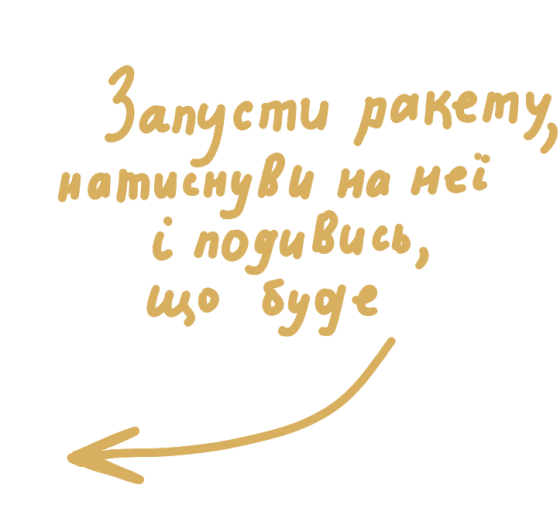 Запусти ракету,
натиснуви на неї
і подивись,
що буде